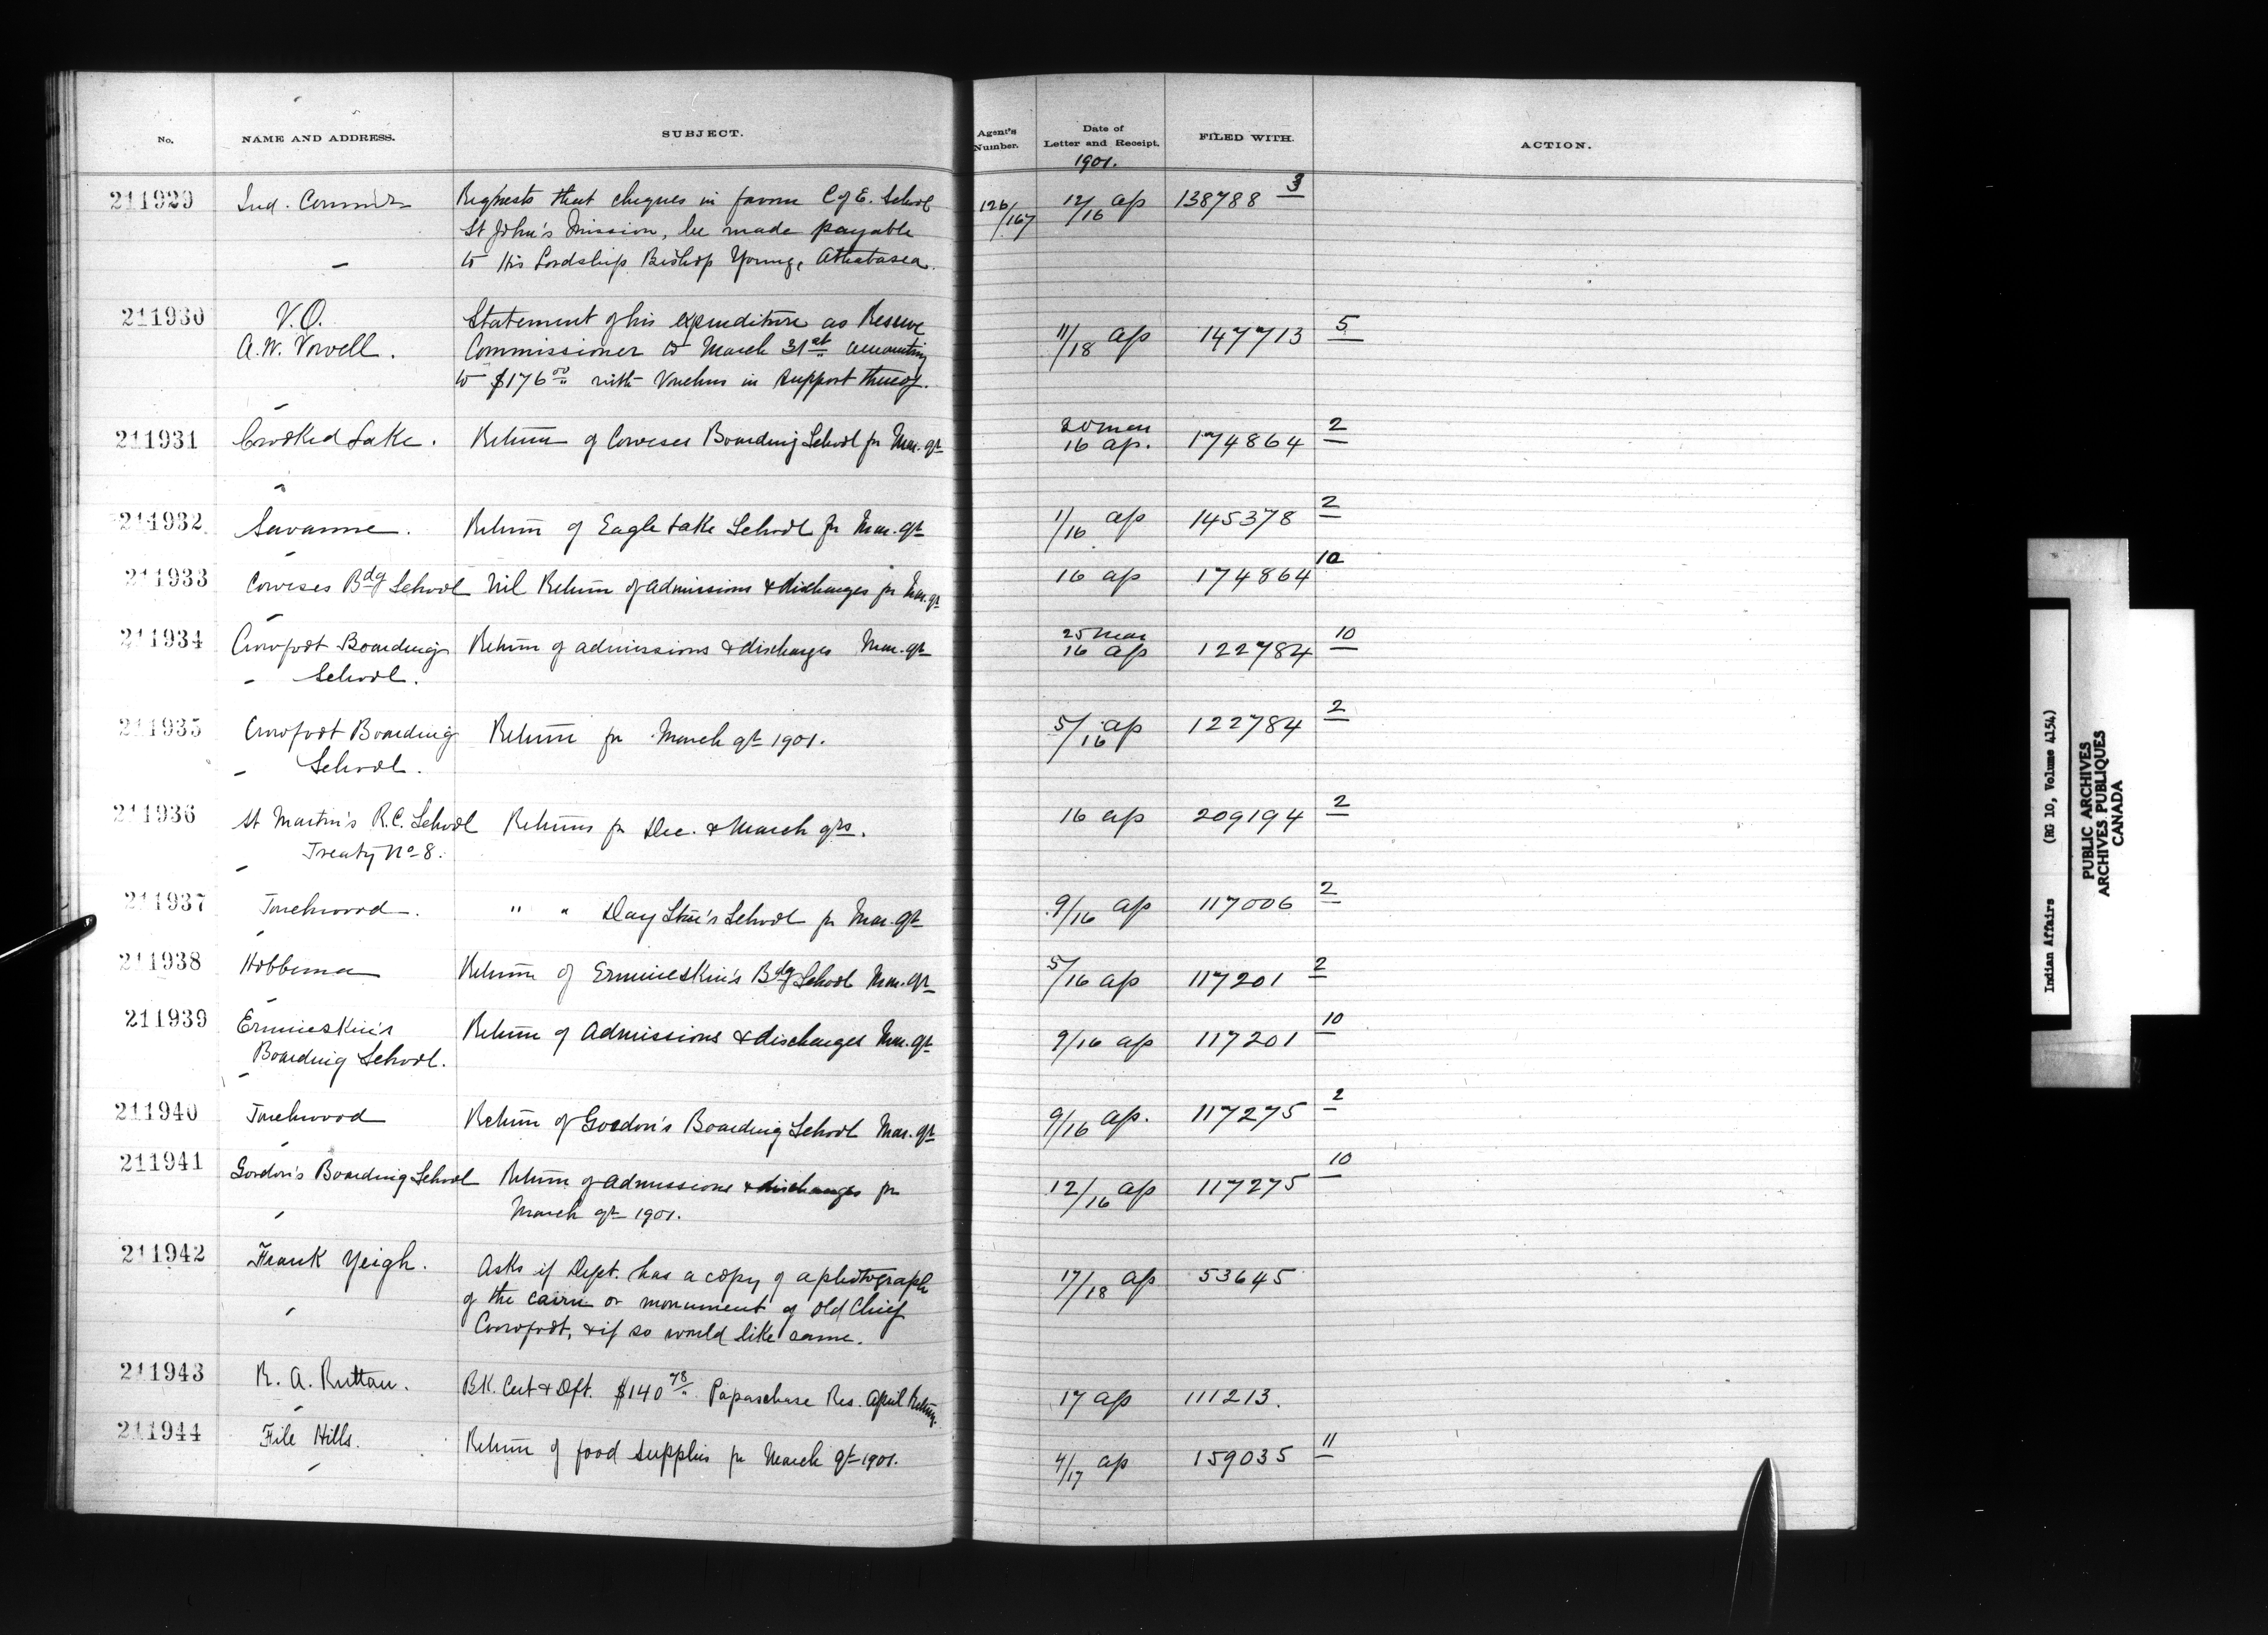 No. NAME AND ADDRESS. SUBJECT. Agent's Number. Date of Letter and Receipt. FILED WITH. ACTION.
1901.
211929 Ind. Commr Requests that cheques in favour C of E. School 126/167 12/16 ap 138788 3
St John's Mission, be made payable
to His Lordship Bishop Young, Athabasca.
211930 V.O. Statement of his expenditure as Reserve
A.W. Vowell. Commissioner to March 31st amounting 11/18 ap 147713 5
to $176.00 with Vouchers in support thereof.
211931 Crooked Lake. Return of Coweses Boarding School fr Mar. qr 20 Mar 16 ap. 174864 2
211932 Savanne. Return of Eagle Lake School fr Mar. qr 11/16 ap 145378 2
211933 Coweses Bdg School Nil Return of admissions & discharges fr Mar. qr 16 ap 174864 10
211934 Crowfoot Boarding Return of admissions & discharges Mar. qr 25 Mar 16 ap 122784 10
School.
211935 Crowfoot Boarding Return fr March qr 1901. 5/16 ap 122784 2
School.
211936 St Martin's R.C. School Returns fr Dec. & March qrs. 16 ap 209194 2
Treaty No 8.
211937 Touchwood. " " Day Star's School fr Mar. qr 9/16 ap 117006 2
211938 Hobbema Return of Ermineskin's Bdg School Mar. qr 5/16 ap 117201 2
211939 Ermineskin's Return of Admissions & discharges Mar. qr 9/16 ap 117201 10
Boarding School.
211940 Touchwood Return of Gordon's Boarding School Mar. qr 9/16 ap. 117275 2
211941 Gordon's Boarding School Return of Admissions & discharges fr 12/16 ap 117275 10
March qr 1901.
211942 Frank Yeigh. Asks if Dept. has a copy of a photograph 17/18 ap 53645
of the cairn or monument of old Chief
Crowfoot, & if so would like same.
211943 R. A. Ruttan. BK. Cert & Dft. $140.78 Papaschase Res. April Return. 17 ap 111213.
211944 File Hills. Return of food supplies fr March qr 1901. 4/17 ap 159035 11
Indian Affairs (RG 10, Volume 4154)
PUBLIC ARCHIVES
ARCHIVES PUBLIQUES
CANADA